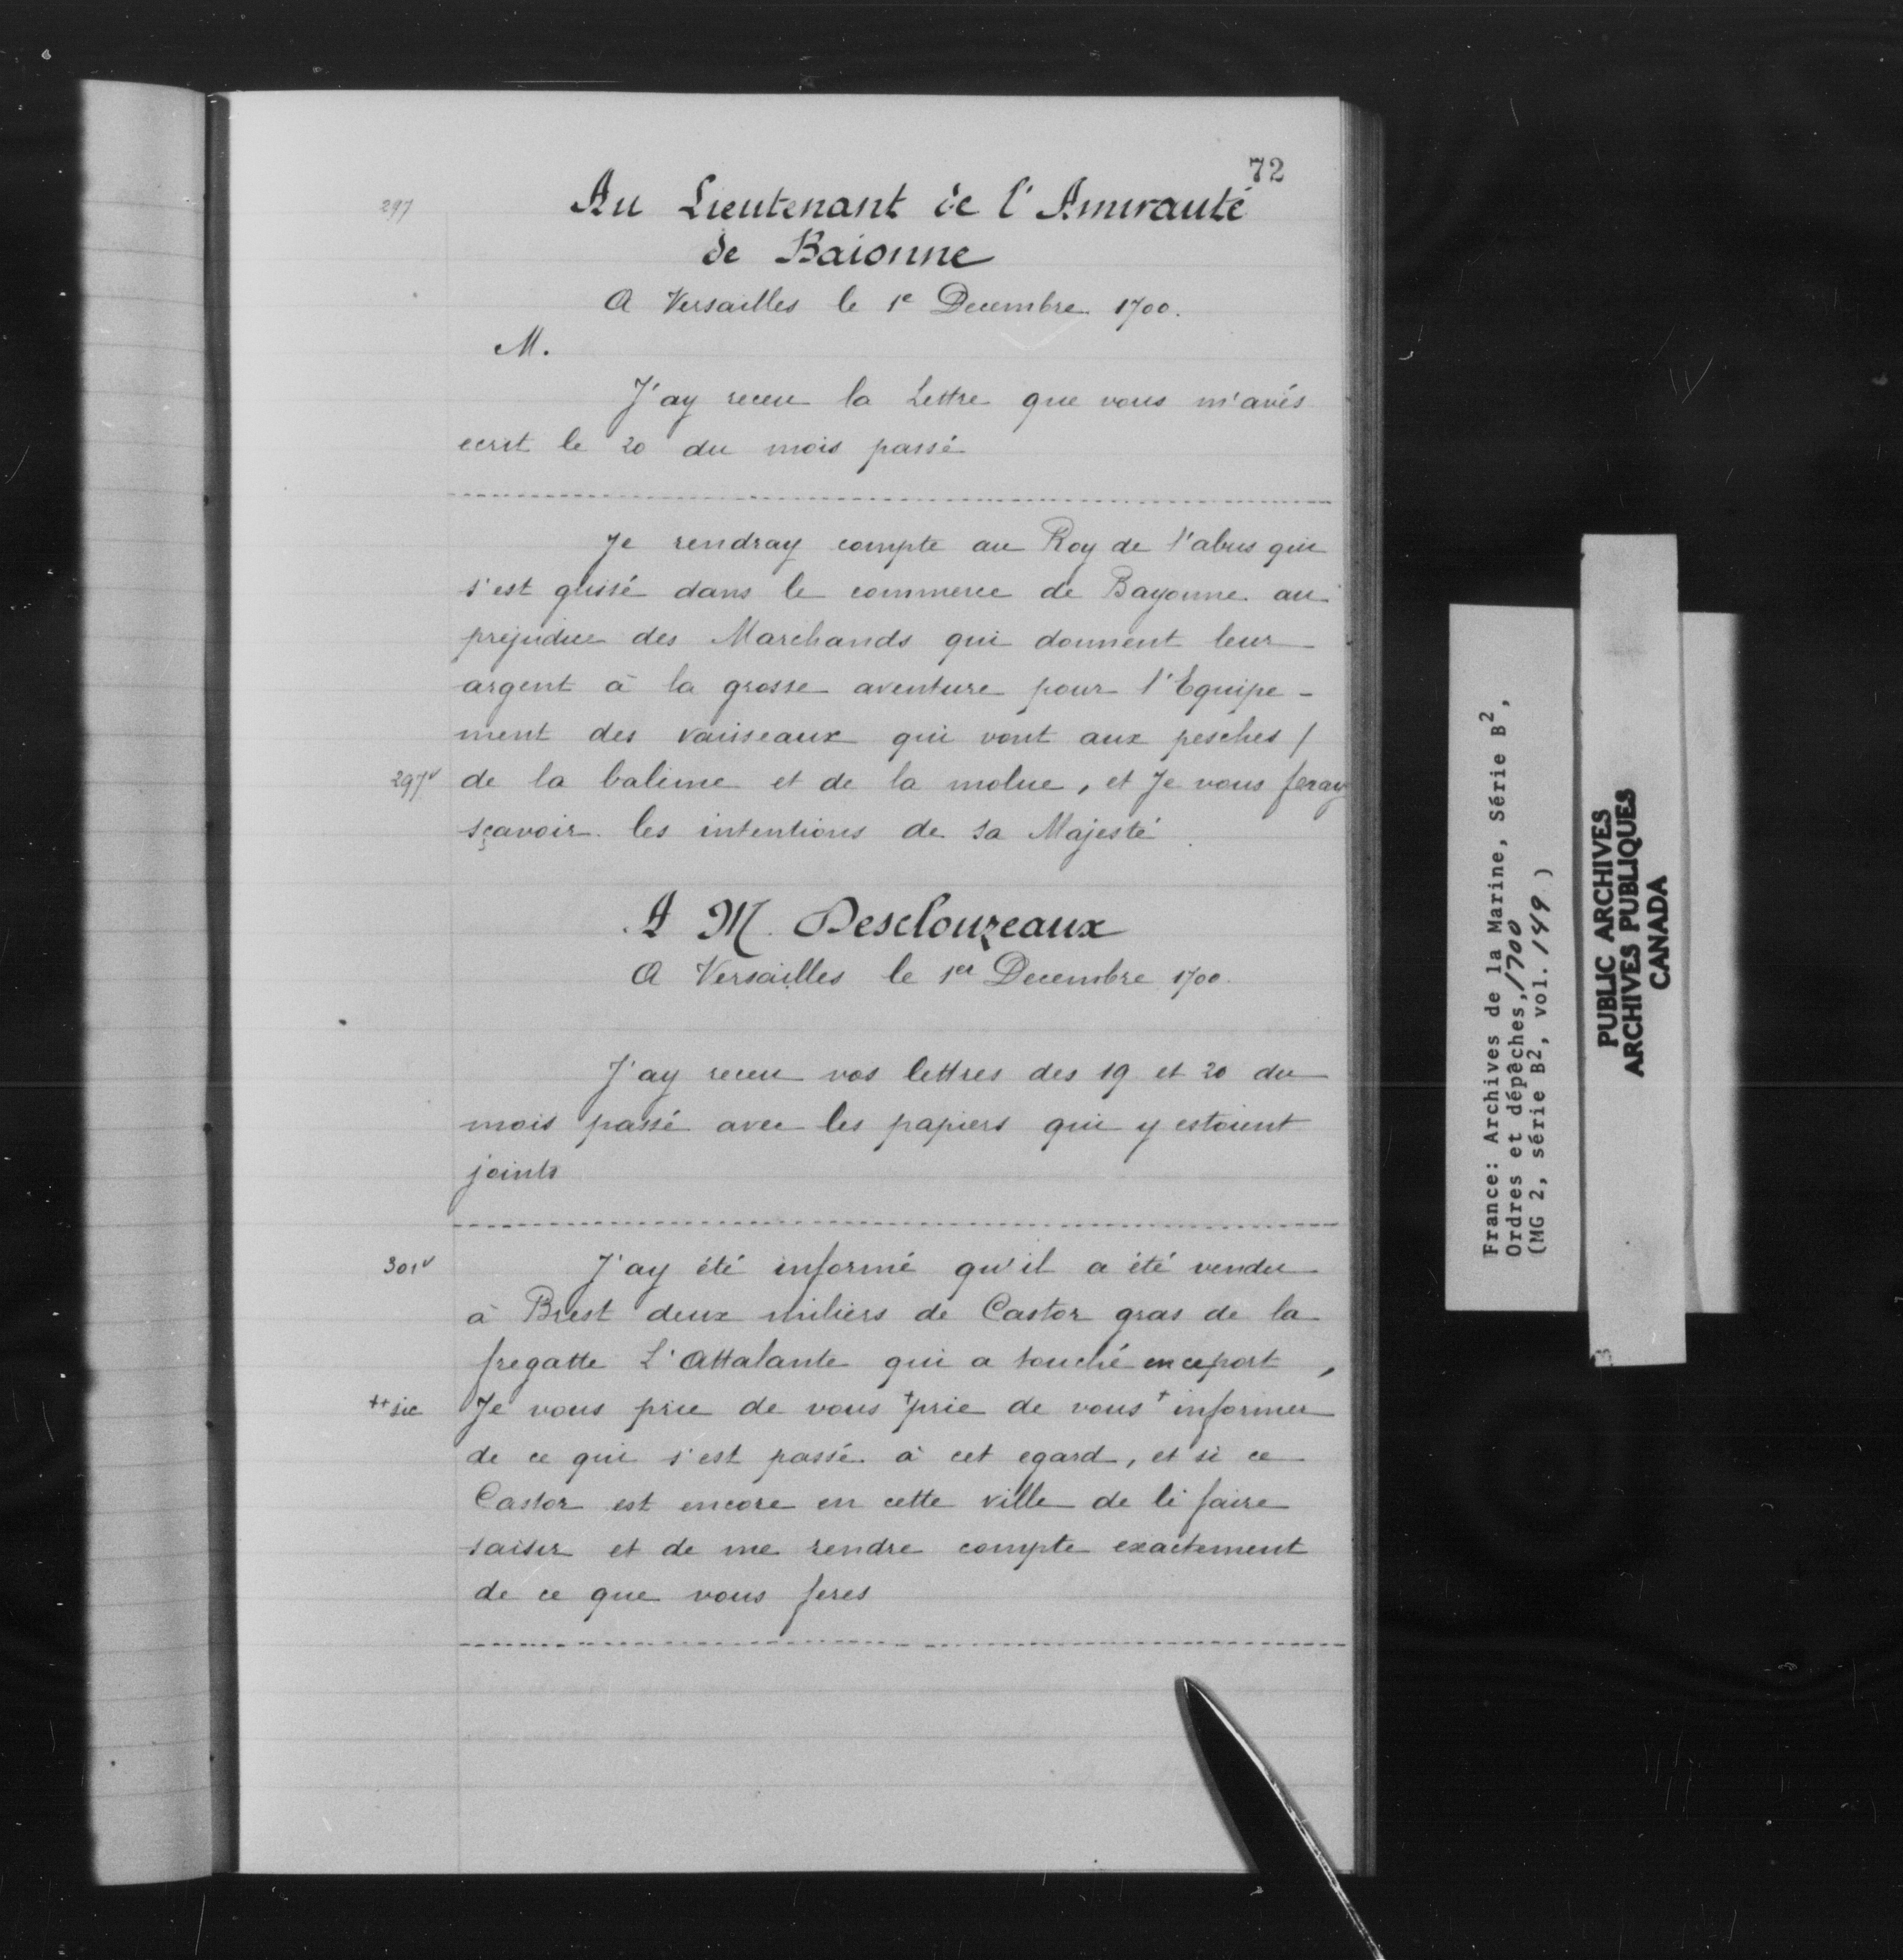 72
297 Au Lieutenant de l'Amirauté
de Baionne
A Versailles le 1e Decembre 1700.
M.
J'ay receu la Lettre que vous m'avés
ecrit le 20 du mois passé
Je rendray compte au Roy de l'abus qui
s'est glissé dans le commerce de Bayonne au
prejudice des Marchands qui donnent leur
argent à la grosse aventure pour l'Equipe-
ment des vaisseaux qui vont aux pesches /
297v de la baleine et de la molue, et Je vous feray
sçavoir les intentions de sa Majesté.
A M. Desclouzeaux
A Versailles le 1er Decembre 1700.
J'ay receu vos lettres des 19 et 20 du
mois passé avec les papiers qui y estoient
joints
301v J'ay été informé qu'il a été vendu
à Brest deux miliers de Castor gras de la
fregatte L'Attalante qui a touché en ce port,
++ sic Je vous prie de vous +prie de vous+ informer
de ce qui s'est passé à cet egard, et si ce
Castor est encore en cette ville de le faire
saisir et de me rendre compte exactement
de ce que vous feres
France: Archives de la Marine, Série B2,
Ordres et dépêches, 1700
(MG 2, série B2, vol. 149 )
PUBLIC ARCHIVES
ARCHIVES PUBLIQUES
CANADA